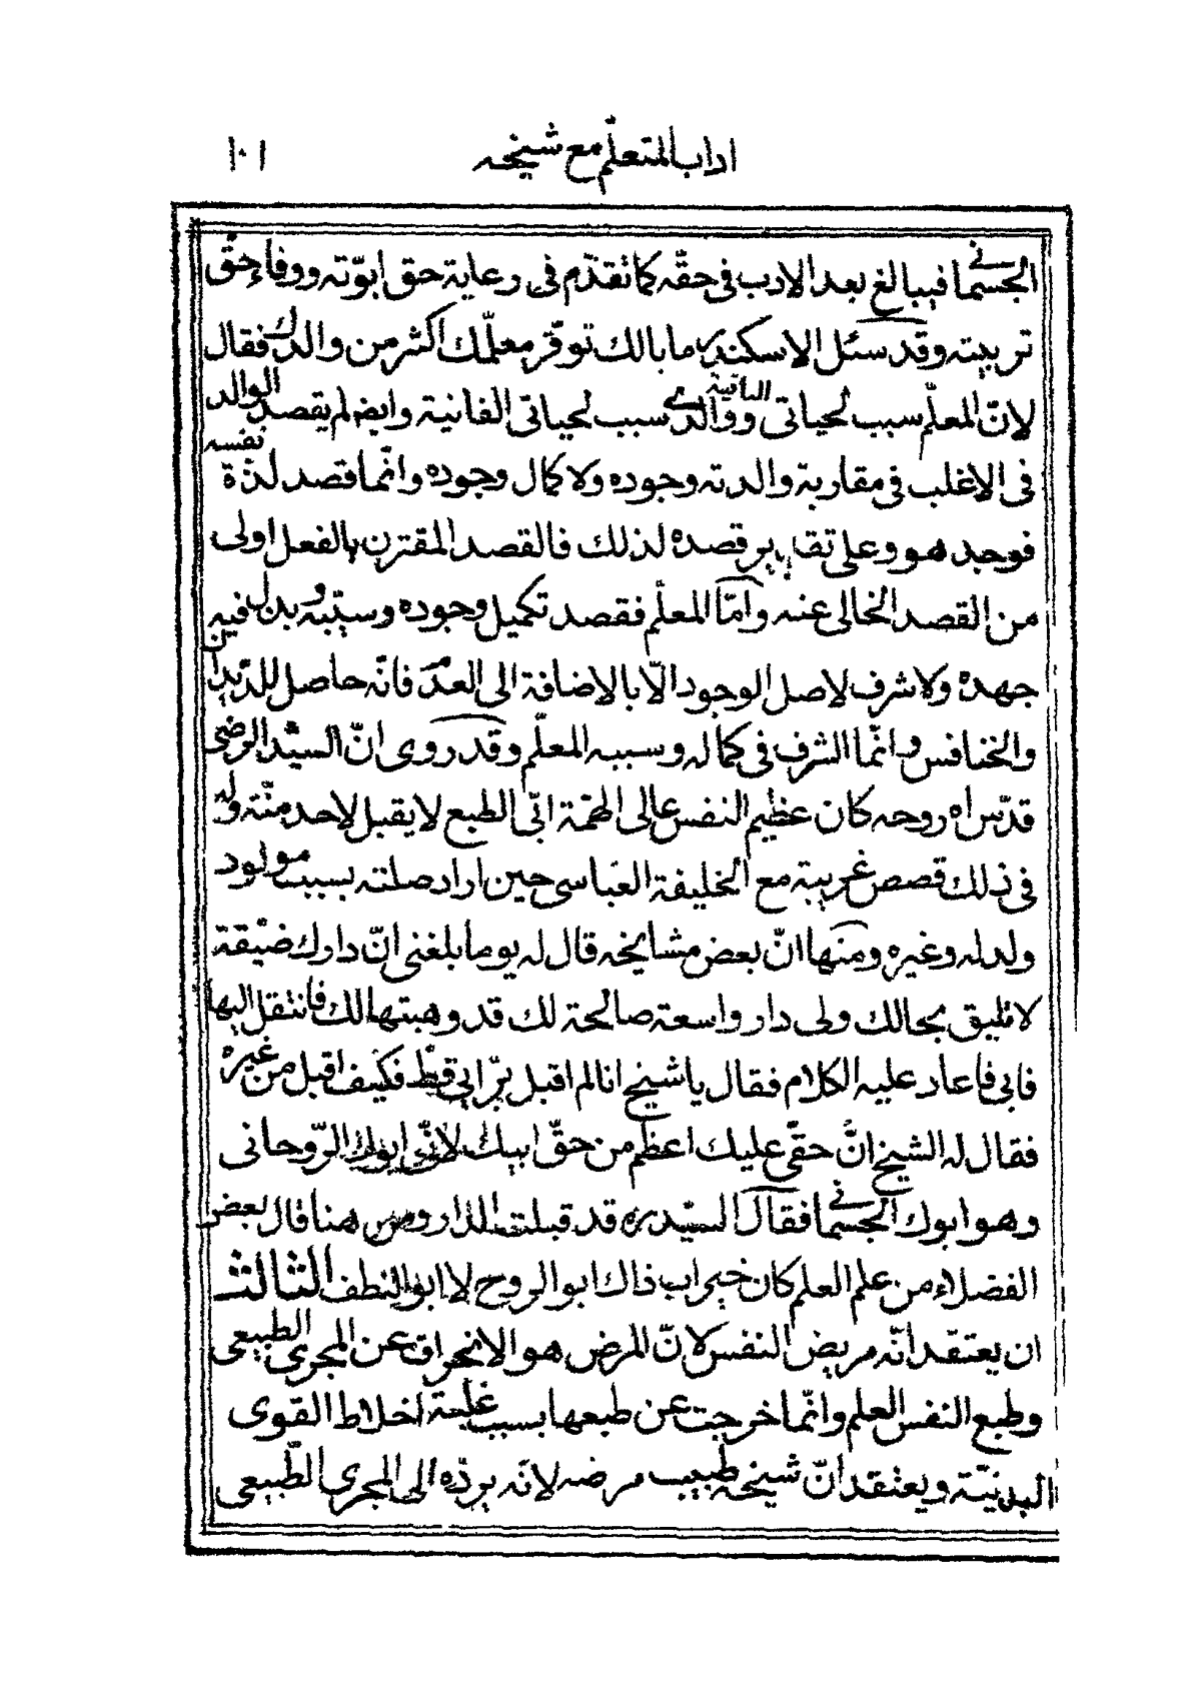 اداب المتعلّم مع شيخه ١٠١
الجسمانى فيبالغ بعد الادب فى حقّه كما تقدّم فى رعاية حق ابوّته ووفاء حقّ
تربيته وقد سئل الاسكندر ما بالك توقّر معلّمك اكثر من والدك فقال
لانّ المعلّم سبب لحياتى الباقية ووالدى سبب لحياتى الفانية وايضا لم يقصد الوالد
فى الاغلب فى مقاربة والدته وجوده ولا كمال وجوده وانّما قصد لذّة نفسه
فوجد هو وعلى تقدير قصده لذلك فالقصد المقترن بالفعل اولى
من القصد الخالى عنه وامّا المعلّم فقصد تكميل وجوده وسببه وبذل فيه
جهده ولا شرف لاصل الوجود الّا بالاضافة الى العدم فانّه حاصل للديدان
والخنافس وانّما الشرف فى كماله وسببه المعلّم وقد روى انّ السيّد الرضى
قدّس اه روحه كان عظيم النفس عالى الهمّة ابّى الطبع لا يقبل لاحد منّة وله
فى ذلك قصص غريبة مع الخليفة العباسى حين اراد صلته بسبب مولود
ولد له وغيره ومنها انّ بعض مشايخه قال له يوما بلغنى انّ دارك ضيّقة
لا تليق بحالك ولى دار واسعة صالحة لك قد وهبتها لك فانتقل اليها
فابى فاعاد عليه الكلام فقال يا شيخ انا لم اقبل برّ ابى قطّ فكيف اقبل من غيره
فقال له الشيخ انّ حقّى عليك اعظم من حقّ ابيك لانّى ابوك الرّوحانى
وهو ابوك الجسمانى فقال السيّد ره قد قبلت الدار ومن هنا قال بعض
الفضلاء من علم العلم كان خير اب ذاك ابو الروح لا ابو النطف الثالث
ان يعتقد انّه مريض النفس لانّ المرض هو الانحراف عن المجرى الطبيعى
وطبع النفس العلم وانّما خرجت عن طبعها بسبب غلبة اخلاط القوى
البدنيّة ويعتقد انّ شيخه طبيب مرضه لانّه يردّه الى المجرى الطّبيعى